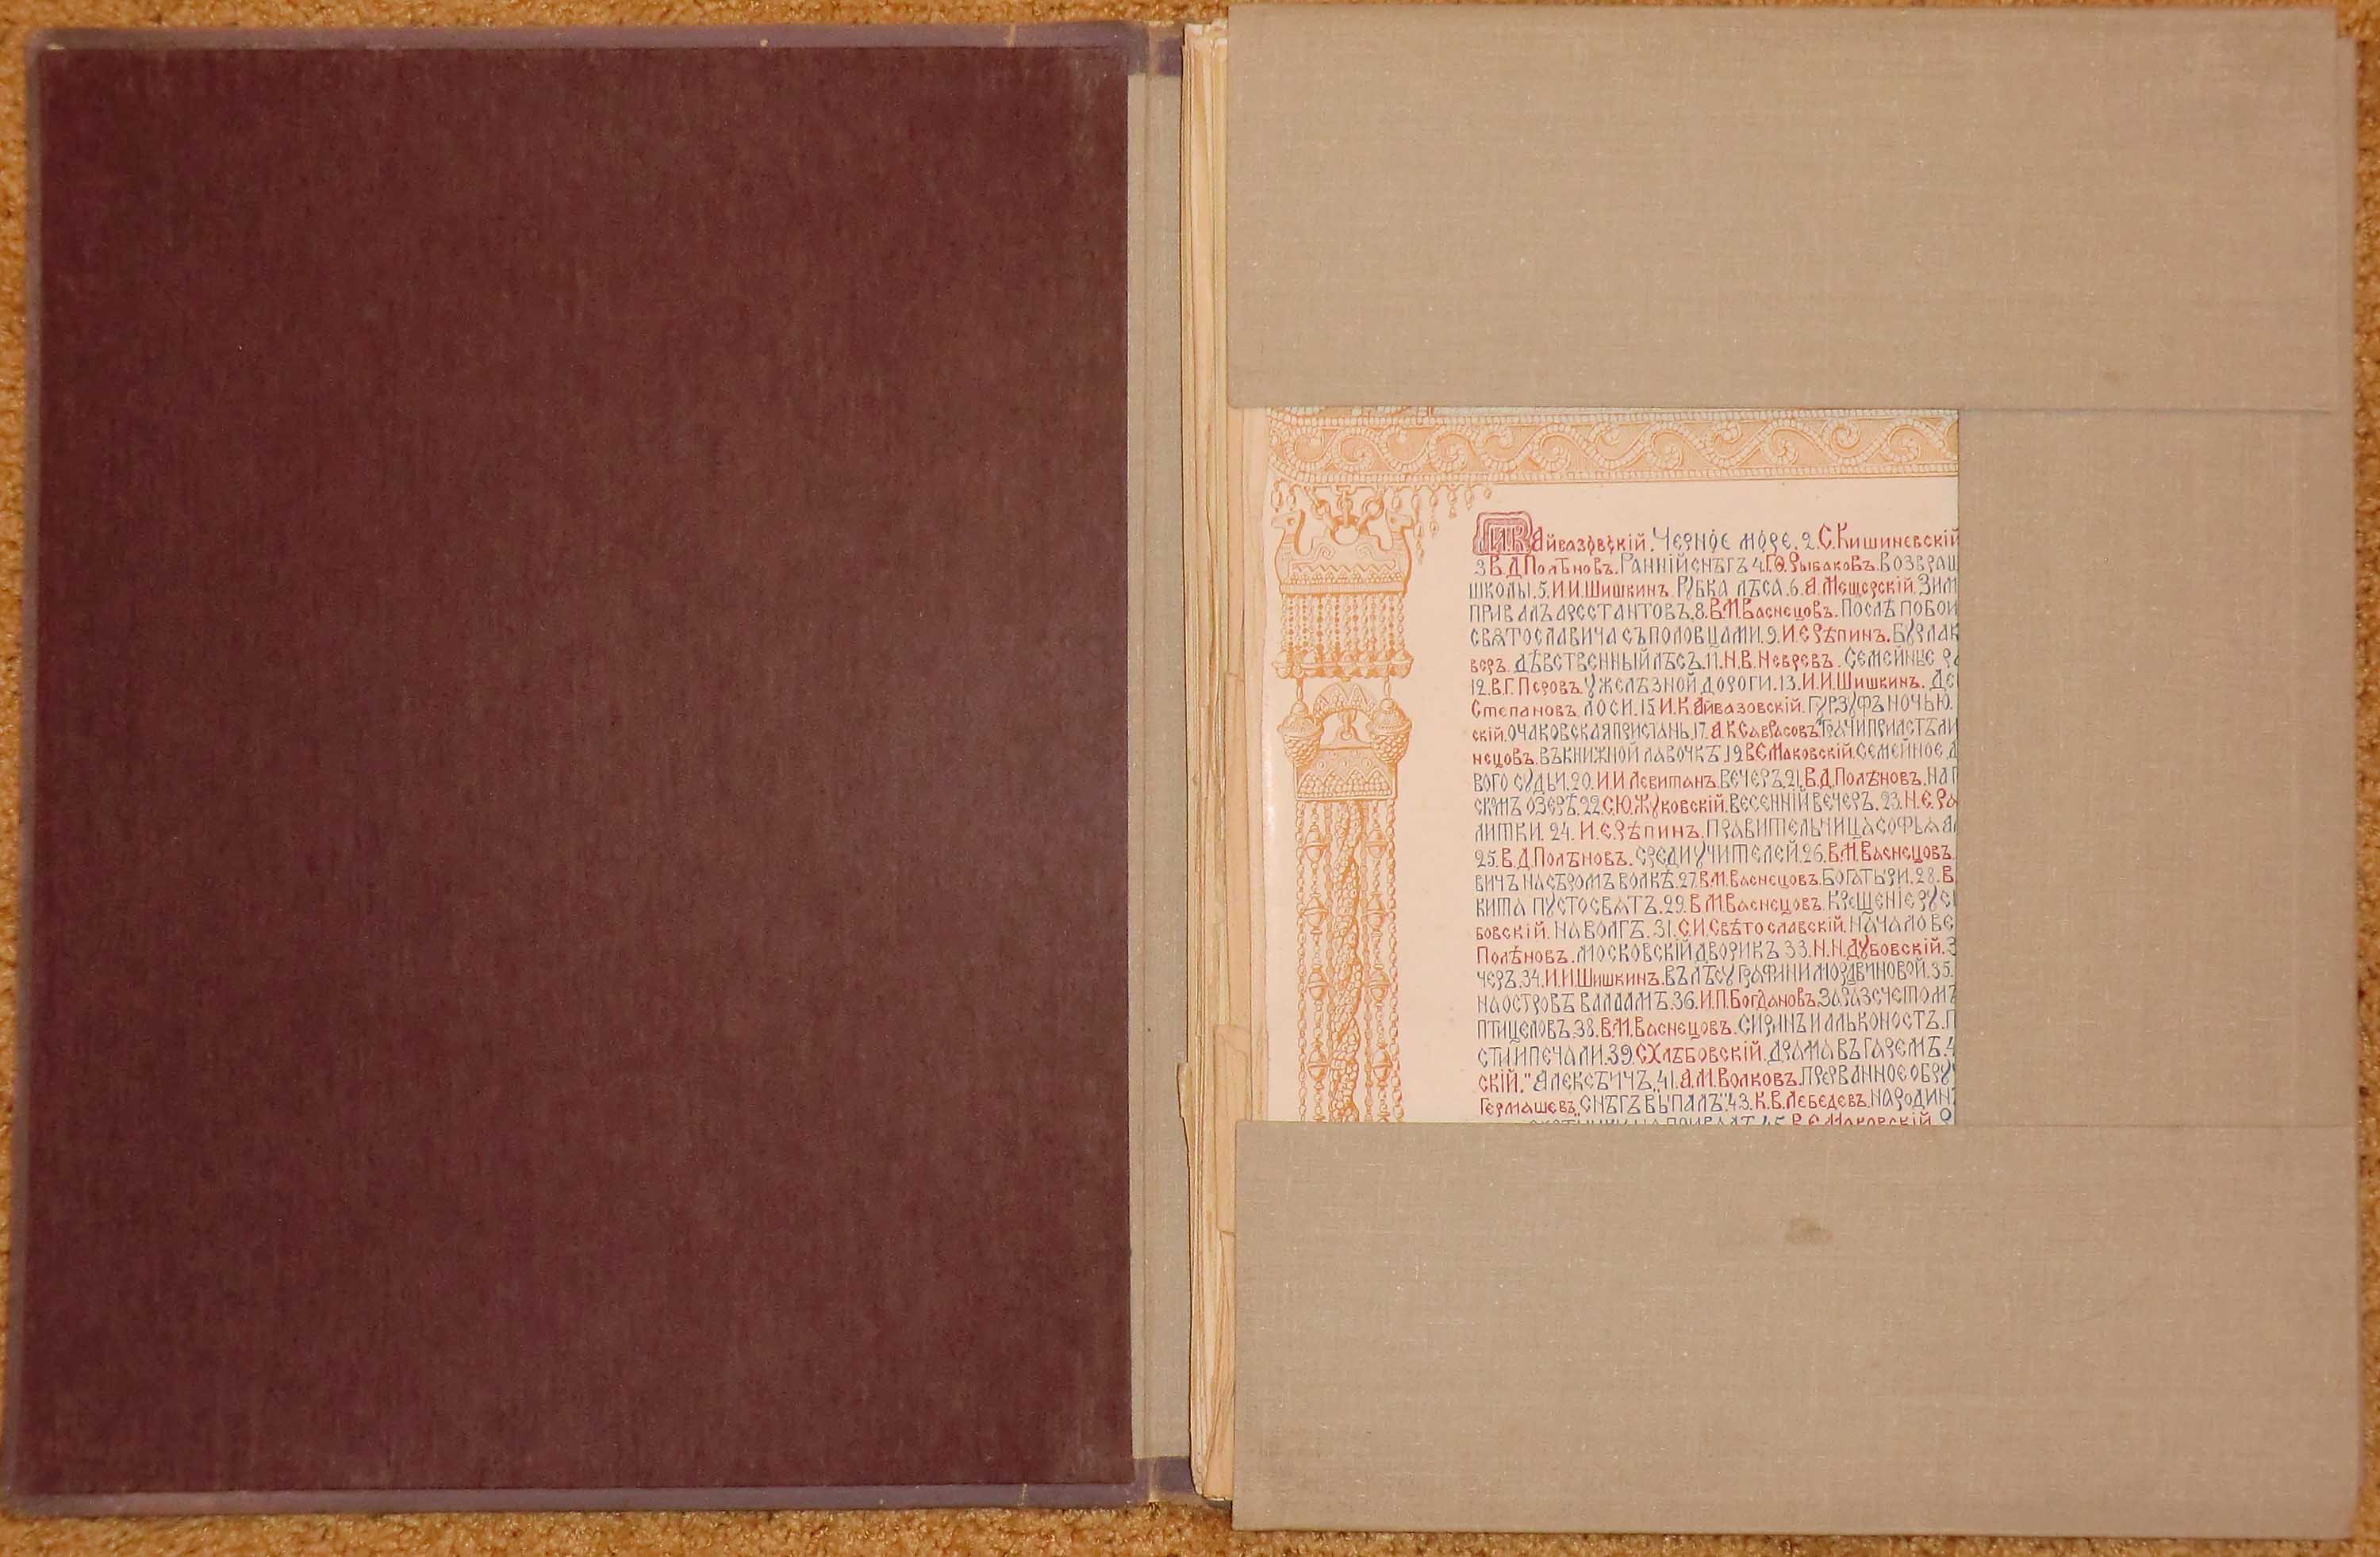 1 И.К. Айвазовскій. Черное море. 2. С. Кишиневскій
3 В.Д. Полѣновъ. Ранній снѣгъ 4. Г.Ѳ. Рыбаковъ. Возвращ
школы. 5. И.И. Шишкинъ. Рубка лѣса. 6. А. Мещерскій. Зим
привалъ арестантовъ. 8. В.М. Васнецовъ. Послѣ побои
Святославича съ половцами. 9. И.Е. Рѣпинъ. Бурлак
веръ. Дѣвственный лѣсъ. 11. Н.В. Невревъ. Семейные ра
12. В.Г. Перовъ. У желѣзной дороги. 13. И.И. Шишкинъ. Де
Степановъ. Лоси. 15 И.К. Айвазовскій. Гурзуфъ ночью.
скій. Очаковская пристань. 17. А.К. Саврасовъ. Грачи прилѣтѣли
нецовъ. Въ книжной лавочкѣ 19 В.Е. Маковскій. Семейное д
вого судьи. 20. И.И. Левитанъ. Вечеръ. 21. В.Д. Полѣновъ. На Г
скомъ озерѣ. 22. С.Ю. Жуковскій. Весенній вечеръ. 23. Н.Е. Ра
литки. 24. И.Е. Рѣпинъ. Правительница Софья А
25. В.Д. Полѣновъ. Среди учителей. 26. В.М. Васнецовъ
вичъ на сѣромъ волкѣ. 27 В.М. Васнецовъ. Богатыри. 28. В
кита Пустосвятъ. 29. В.М. Васнецовъ. Крещеніе Руси
бовскій. На Волгѣ. 31. С.И. Свѣтославскій. Начало ве
Полѣновъ. Московскій дворикъ 33. Н.Н. Дубовскій. З
черъ. 34. И.И. Шишкинъ. Въ лѣсу графини Мордвиновой. 35.
на островѣ Валаамѣ. 36. И.П. Богдановъ. За разсчетомъ
Птицеловъ. 38. В.М. Васнецовъ. Сиринъ и Алконостъ. П
сти и печали. 39. С. Хлѣбовскій. Драма въ гаремѣ. 4
скій. "Алексѣичъ". 41. А.М. Волковъ. Прерванное обру
Гермашевъ. "Снѣгъ выпалъ" 43. К.В. Лебедевъ. На родин
на привалѣ. 45. В.Е. Маковскій